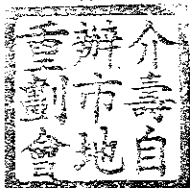 介壽自
辦市地
重劃會